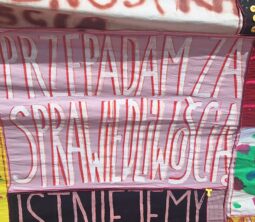 PRZEPADAM ZA
SPRAWIEDLIWOŚCIĄ
ISTNIEJEMY